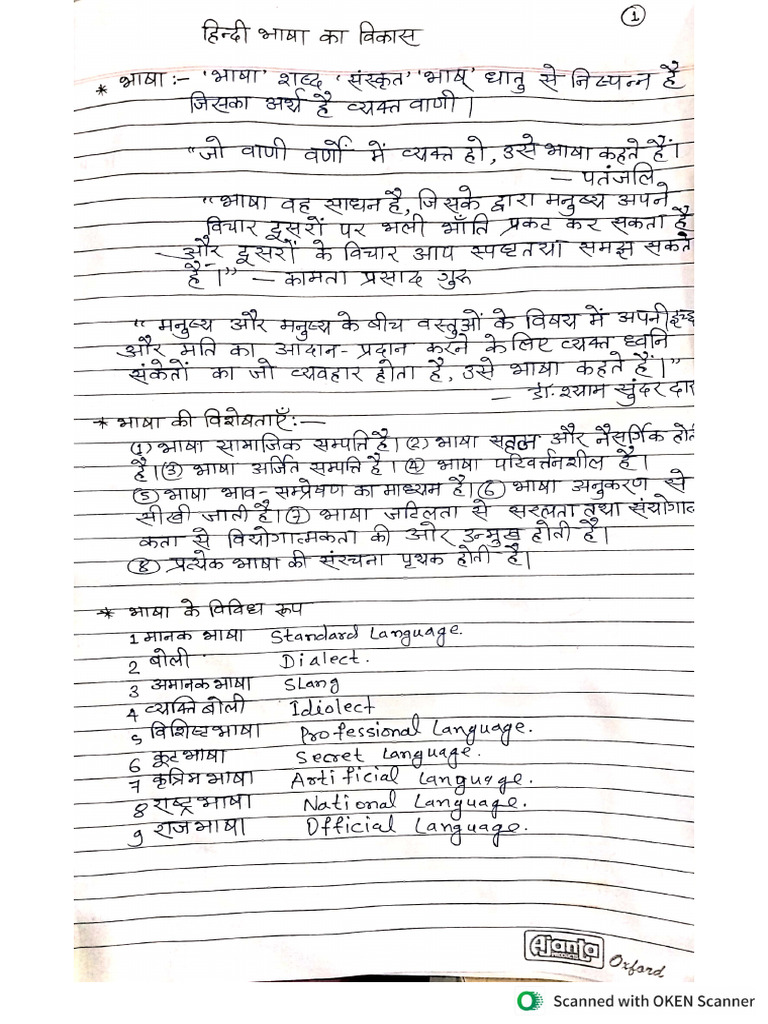 1
हिन्दी भाषा का विकास
* भाषा :- 'भाषा' शब्द 'संस्कृत' 'भाष्' धातु से निष्पन्न है
जिसका अर्थ है व्यक्त वाणी।
"जो वाणी वर्णों में व्यक्त हो, उसे भाषा कहते हैं।
— पतंजलि
"भाषा वह साधन है, जिसके द्वारा मनुष्य अपने
विचार दूसरों पर भली भाँति प्रकट कर सकता है
और दूसरों के विचार आप स्पष्टतया समझ सकते
हैं।" — कामता प्रसाद गुरु
"मनुष्य और मनुष्य के बीच वस्तुओं के विषय में अपनी इच्छ
और मति का आदान-प्रदान करने के लिए व्यक्त ध्वनि
संकेतों का जो व्यवहार होता है, उसे भाषा कहते हैं।"
— डॉ. श्याम सुंदर दास
* भाषा की विशेषताएँ:—
(1) भाषा सामाजिक सम्पति है। (2) भाषा और नैसर्गिक होत
है। (3) भाषा अर्जित सम्पत्ति है। (4) भाषा परिवर्त्तनशील है।
(5) भाषा भाव-सम्प्रेषण का माध्यम है। (6) भाषा अनुकरण से
सीखी जाती है। (7) भाषा जटिलता से सरलता तथा संयोगात
कता से वियोगात्मकता की ओर उन्मुख होती है।
(8) प्रत्येक भाषा की संरचना पृथक होती है।
* भाषा के विविध रूप
1 मानक भाषा Standard Language.
2 बोली Dialect.
3 अमानक भाषा SLang
4 व्यक्ति बोली Idiolect
5 विशिष्ट भाषा Professional Language.
6 कूट भाषा Secret Language.
7 कृत्रिम भाषा Artificial Language.
8 राष्ट्र भाषा National Language.
9 राज भाषा Official Language.
Ajanta
Oxford
Scanned with OKEN Scanner